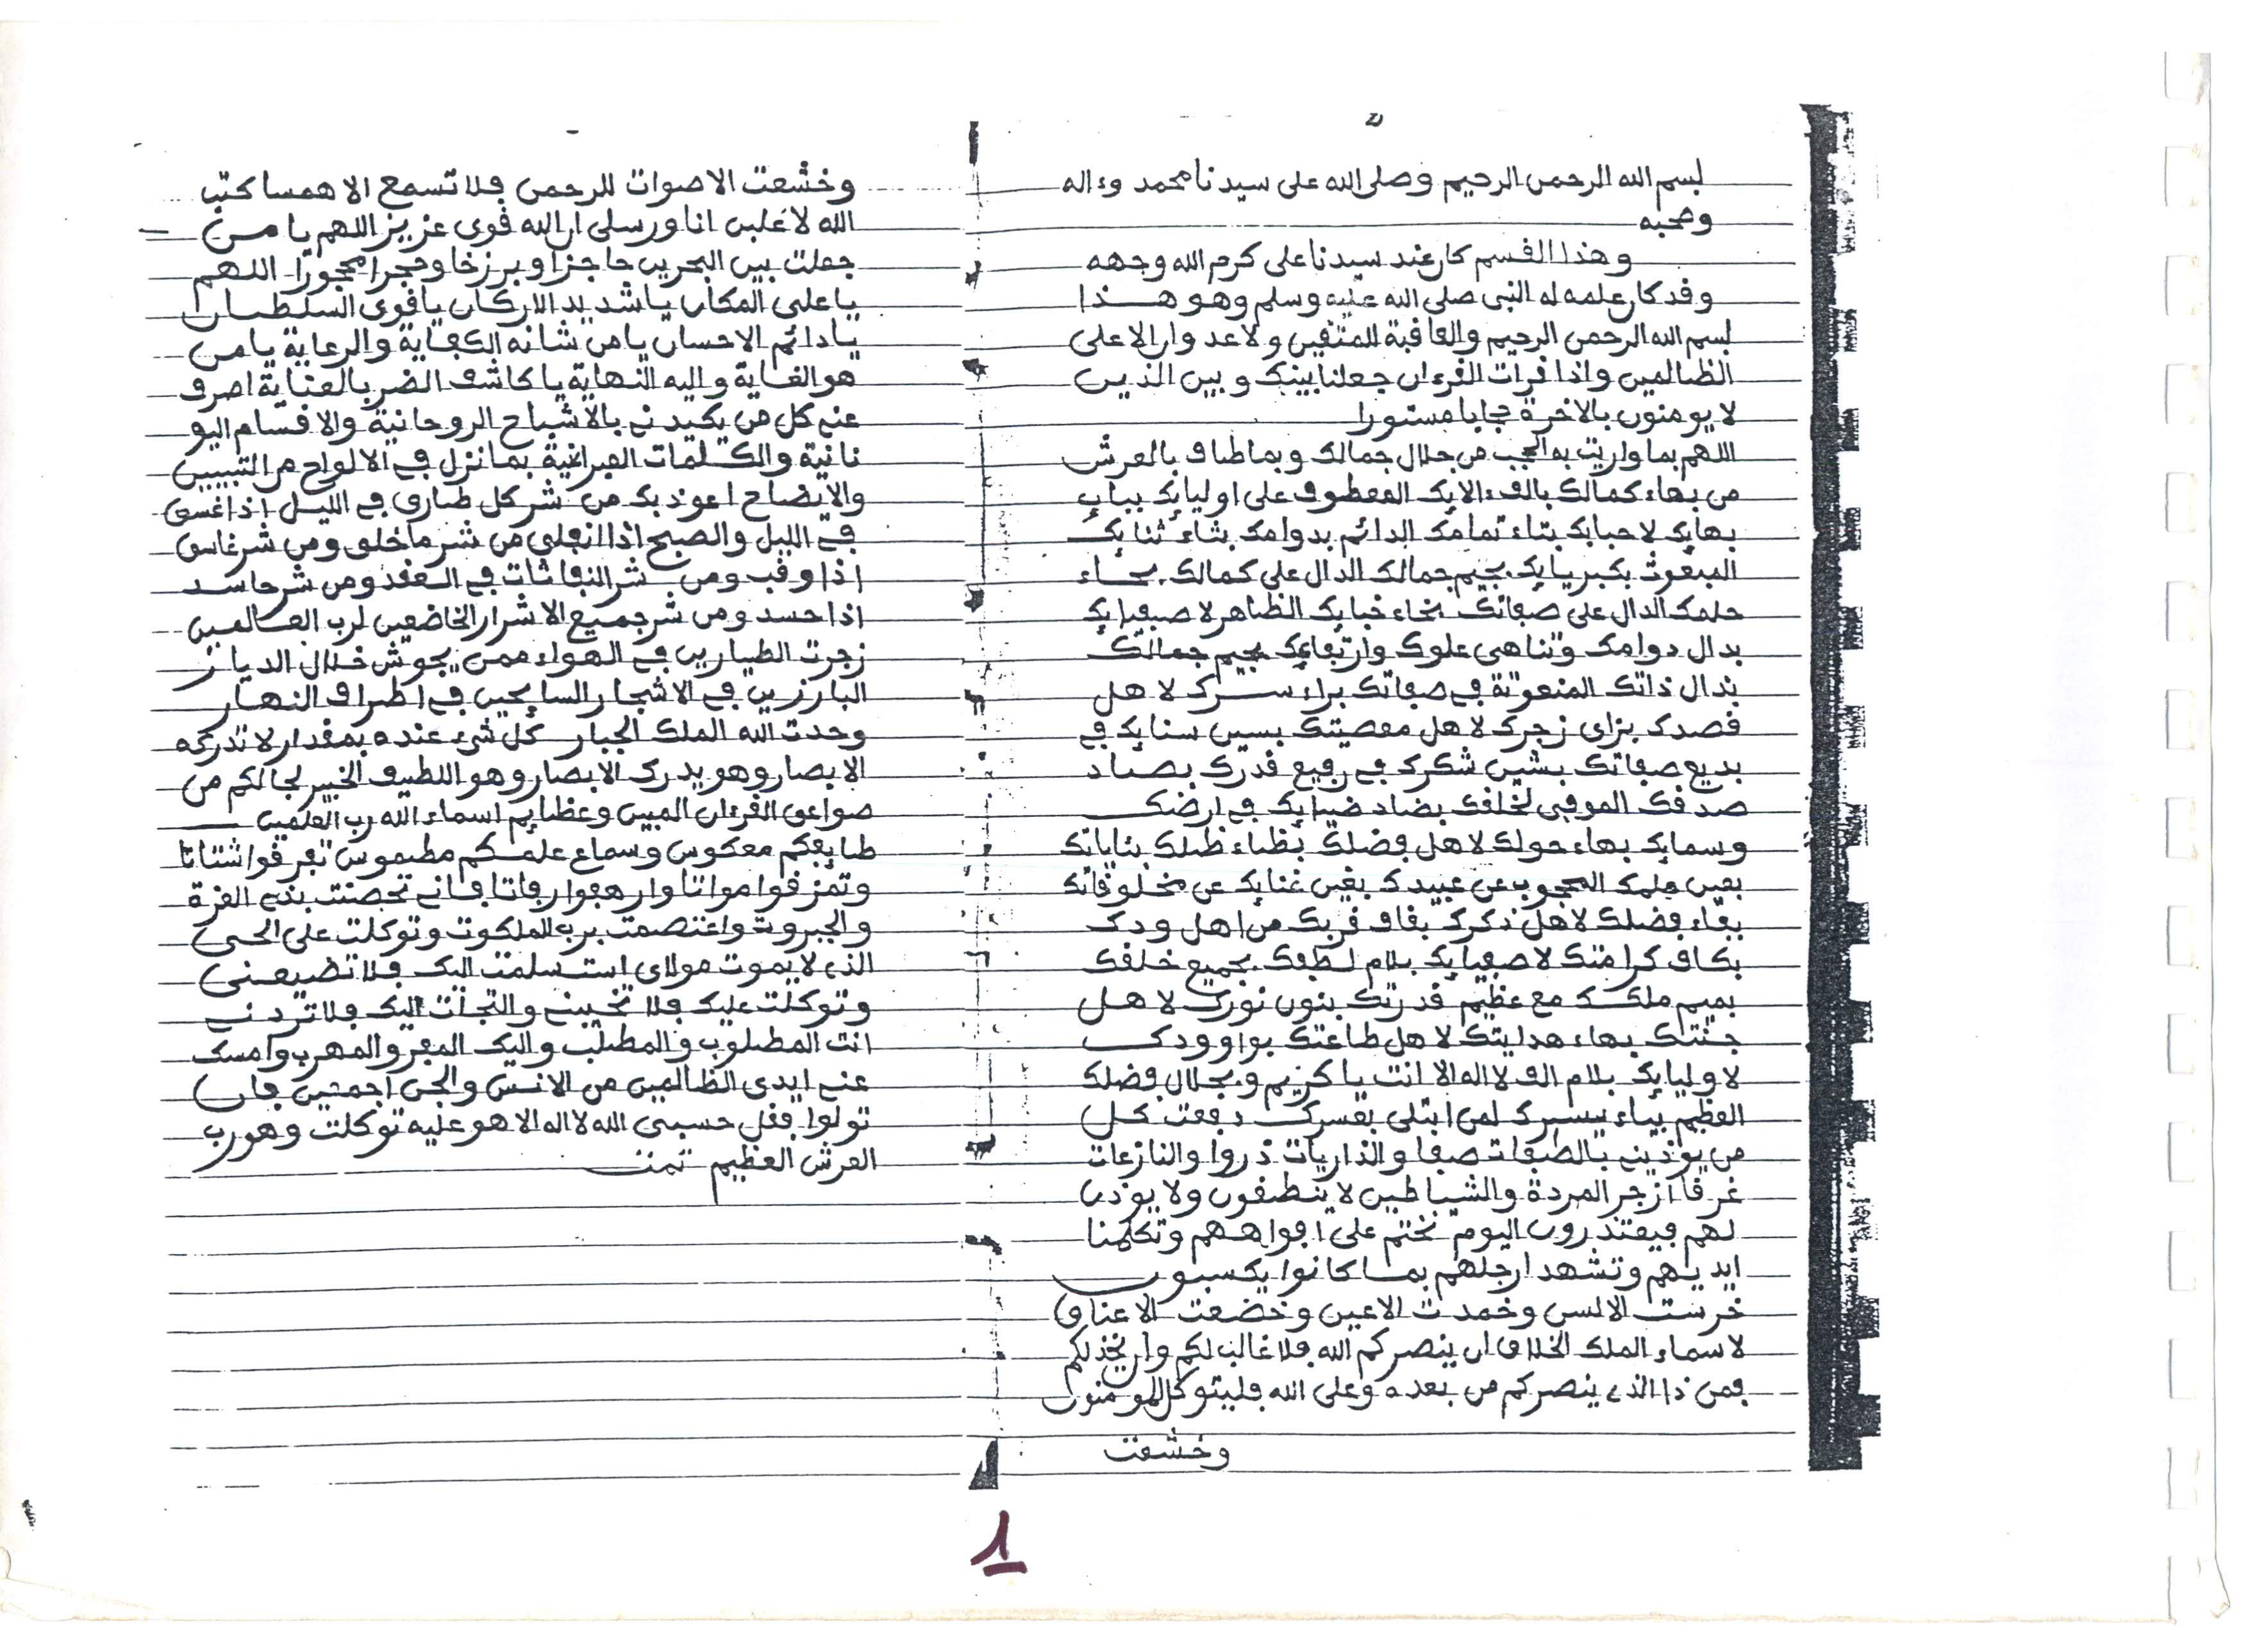 بسم الله الرحمن الرحيم وصلى الله على سيدنا محمد وءاله
وصحبه
وهذا القسم كان عند سيدنا على كرم الله وجهه
وقد كان علمه له النبى صلى الله عليه وسلم وهو هذا
بسم الله الرحمن الرحيم والعاقبة للمتقين ولا عدوان الا على
الظالمين واذا قرات القرءان جعلنا بينك وبين الذين
لا يومنون بالاخرة حجابا مستورا
اللهم بما واريت به الحجب من جلال جمالك وبما طاف بالعرش
من بهاء كمالك بالف ءالايك المعطوف على اوليايك بباء
بهايك لاحبابك بتاء تمامك الدائم بدوامك بثاء ثنايك
المنعوت بكبريايك بجيم جمالك الدال على كمالك بحاء
حلمك الدال على صفاتك بخاء خبايك الظاهر لاصفيايك
بدال دوامك وتناهى علوك وارتفاعك بجيم جمالك
بذال ذاتك المنعوتة في صفاتك براء سرك لاهل
قصدك بزاى زجرك لاهل معصيتك بسين سنايك في
بديع صفاتك بشين شكرك في رفيع قدرك بصاد
صدقك الموفى لخلقك بضاد ضيايك في ارضك
وسمايك بهاء حولك لاهل فضلك بظاء ظلك بئاياتك
بعين علمك المحجوب عن عبيدك بغين غنايك عن مخلوقاتك
بفاء فضلك لاهل ذكرك بقاف قربك من اهل ودك
بكاف كرامتك لاصفيايك بلام لطفك بجميع خلقك
بميم ملكك مع عظيم قدرتك بنون نورك لاهل
جنتك بهاء هدايتك لاهل طاعتك بواو ودك
لاوليايك بلام الف لا اله الا انت يا كريم وبجلال فضلك
العظيم بياء يسرك لمن ابتلى بعسرك دفعت كل
من يوذينے بالصافات صفا والذاريات ذروا والنازعات
غرقا ازجر المردة والشياطين لا ينطقون ولا يوذن
لهم فيعتذرون اليوم نختم على افواههم وتكلمنا
ايديهم وتشهد ارجلهم بما كانوا يكسبون
خرست الالسن وخمدت الاعين وخضعت الاعناق
لاسماء الملك الخلاق ان ينصركم الله فلا غالب لكم وان يخذلكم
فمن ذا الذے ينصركم من بعده وعلى الله فليتوكل المومنون
وخشعت
وخشعت الاصوات للرحمن فلا تسمع الا همسا كتب
الله لاغلبن انا ورسلى ان الله قوى عزيز اللهم يا من
جعلت بين البحرين حاجزا وبرزخا وحجرا محجورا اللهم
يا على المكان يا شديد الاركان يا قوى السلطان
يا دائم الاحسان يا من شانه الكفاية والرعاية يا من
هو الغاية واليه النهاية يا كاشف الضر بالعناية اصرف
عنے كل من يكيدنے بالاشباح الروحانية والاقسام اليو
نانية والكلمات العبرانية بما نزل في الالواح من التبيين
والايضاح اعوذ بك من شر كل طارق في الليل اذا غسق
في الليل والصبح اذا انفلق من شر ما خلق ومن شر غاسق
اذا وقب ومن شر النفاثات في العقد ومن شر حاسد
اذا حسد ومن شر جميع الاشرار الخاضعين لرب العالمين
زجرت الطيارين في الهواء ممن يجوش خلال الديار
البارزين في الاشجار السايحين في اطراف النهار
وحدت الله الملك الجبار كل شىء عنده بمقدار لا تدركه
الابصار وهو يدرك الابصار وهو اللطيف الخبير لجالكم من
صواعق القرءان المبين وعظايم اسماء الله رب العلمين
طابعكم معكوس وسماع علمكم مطموس تفرقوا شتاتا
وتمزقوا مواتا وارهبوا رفاتا فانے تحصنت بذے العزة
والجبروت واعتصمت برب الملكوت وتوكلت على الحى
الذے لا يموت مولاى استسلمت اليك فلا تضيعنى
وتوكلت عليك فلا تخيبنے والتجات اليك فلا تردنے
انت المطلوب والمطلب واليك المفر والمهرب وامسك
عنے ايدى الظالمين من الانس والجن اجمعين فان
تولوا فقل حسبى الله لا اله الا هو عليه توكلت وهو رب
العرش العظيم تمت
1